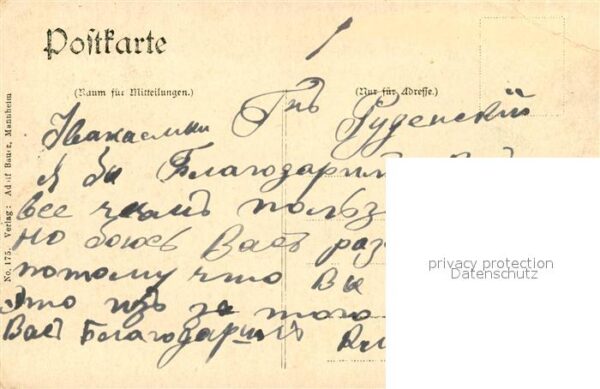 Postkarte
(Raum für Mitteilungen.)
(Nur für Adresse.)
No. 175. Verlag: Adolf Bauer, Mannheim
Гнъ Руденскій
я бы Благодарилъ
все чѣмъ польз
но боюсь Васъ раз
потому что вы
это изъ за того
Васъ Благодарить
privacy protection
Datenschutz